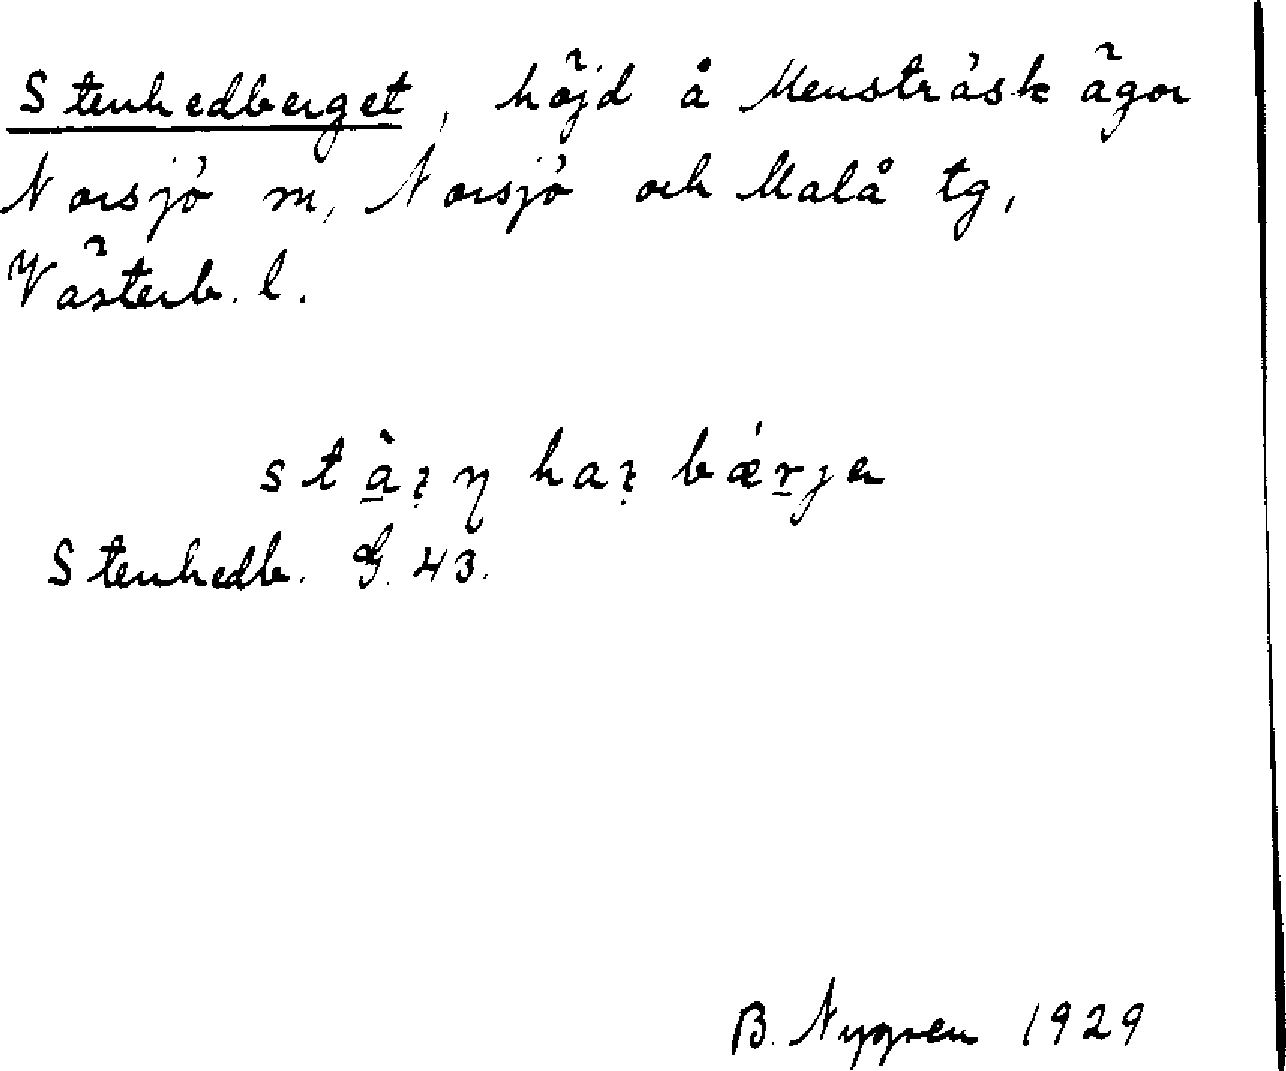 Stenhedberget, höjd å Mensträsk ägor
Norsjö m, Norsjö och Malå tg,
Västerb. l.
Stenhedb. G. 43.
B. Nygren 1929